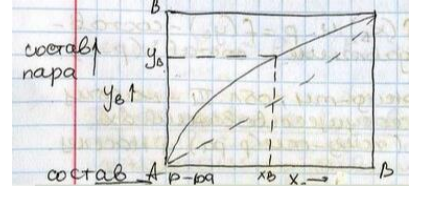 B
состав↑
пара
yв
yв↑
состав А р-ра xв x→ B